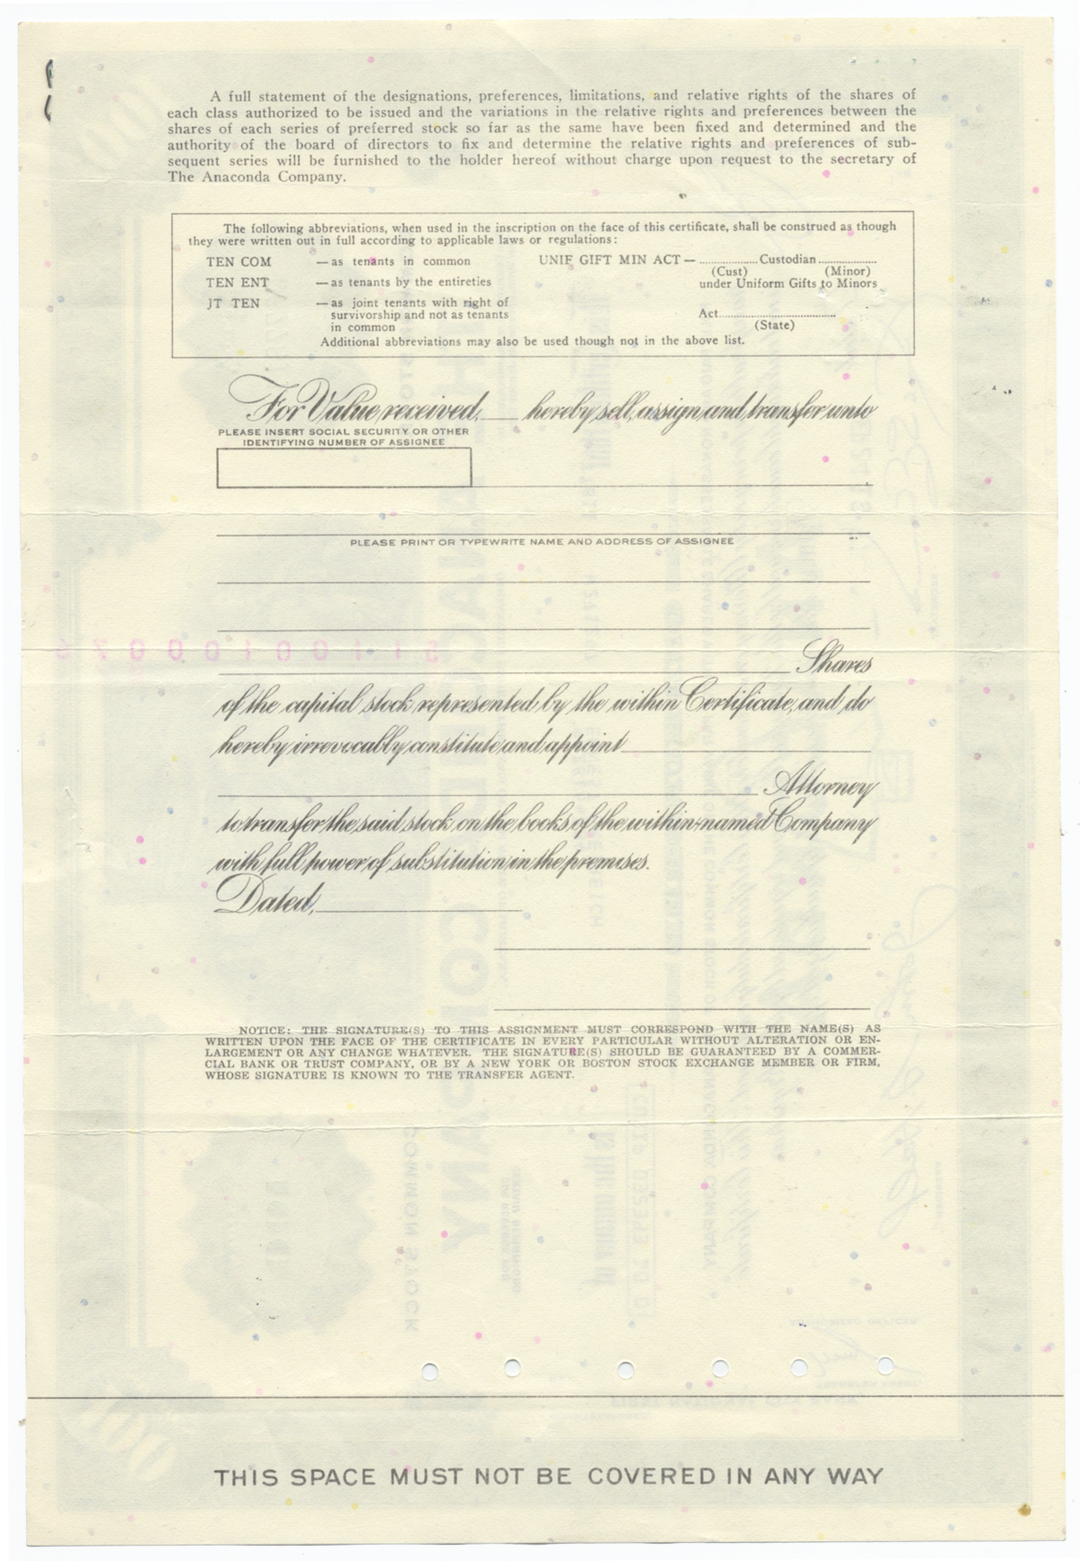 A full statement of the designations, preferences, limitations, and relative rights of the shares of
each class authorized to be issued and the variations in the relative rights and preferences between the
shares of each series of preferred stock so far as the same have been fixed and determined and the
authority of the board of directors to fix and determine the relative rights and preferences of sub-
sequent series will be furnished to the holder hereof without charge upon request to the secretary of
The Anaconda Company.
The following abbreviations, when used in the inscription on the face of this certificate, shall be construed as though
they were written out in full according to applicable laws or regulations:
TEN COM — as tenants in common UNIF GIFT MIN ACT — .................. Custodian ..................
(Cust) (Minor)
TEN ENT — as tenants by the entireties under Uniform Gifts to Minors
JT TEN — as joint tenants with right of
survivorship and not as tenants Act....................................
in common (State)
Additional abbreviations may also be used though not in the above list.
For Value received, ____ hereby sell, assign and transfer unto
PLEASE INSERT SOCIAL SECURITY OR OTHER
IDENTIFYING NUMBER OF ASSIGNEE
PLEASE PRINT OR TYPEWRITE NAME AND ADDRESS OF ASSIGNEE
Shares
of the capital stock represented by the within Certificate, and do
hereby irrevocably constitute and appoint
Attorney
to transfer the said stock on the books of the within-named Company
with full power of substitution in the premises.
Dated,
NOTICE: THE SIGNATURE(S) TO THIS ASSIGNMENT MUST CORRESPOND WITH THE NAME(S) AS
WRITTEN UPON THE FACE OF THE CERTIFICATE IN EVERY PARTICULAR WITHOUT ALTERATION OR EN-
LARGEMENT OR ANY CHANGE WHATEVER. THE SIGNATURE(S) SHOULD BE GUARANTEED BY A COMMER-
CIAL BANK OR TRUST COMPANY, OR BY A NEW YORK OR BOSTON STOCK EXCHANGE MEMBER OR FIRM,
WHOSE SIGNATURE IS KNOWN TO THE TRANSFER AGENT.
THIS SPACE MUST NOT BE COVERED IN ANY WAY